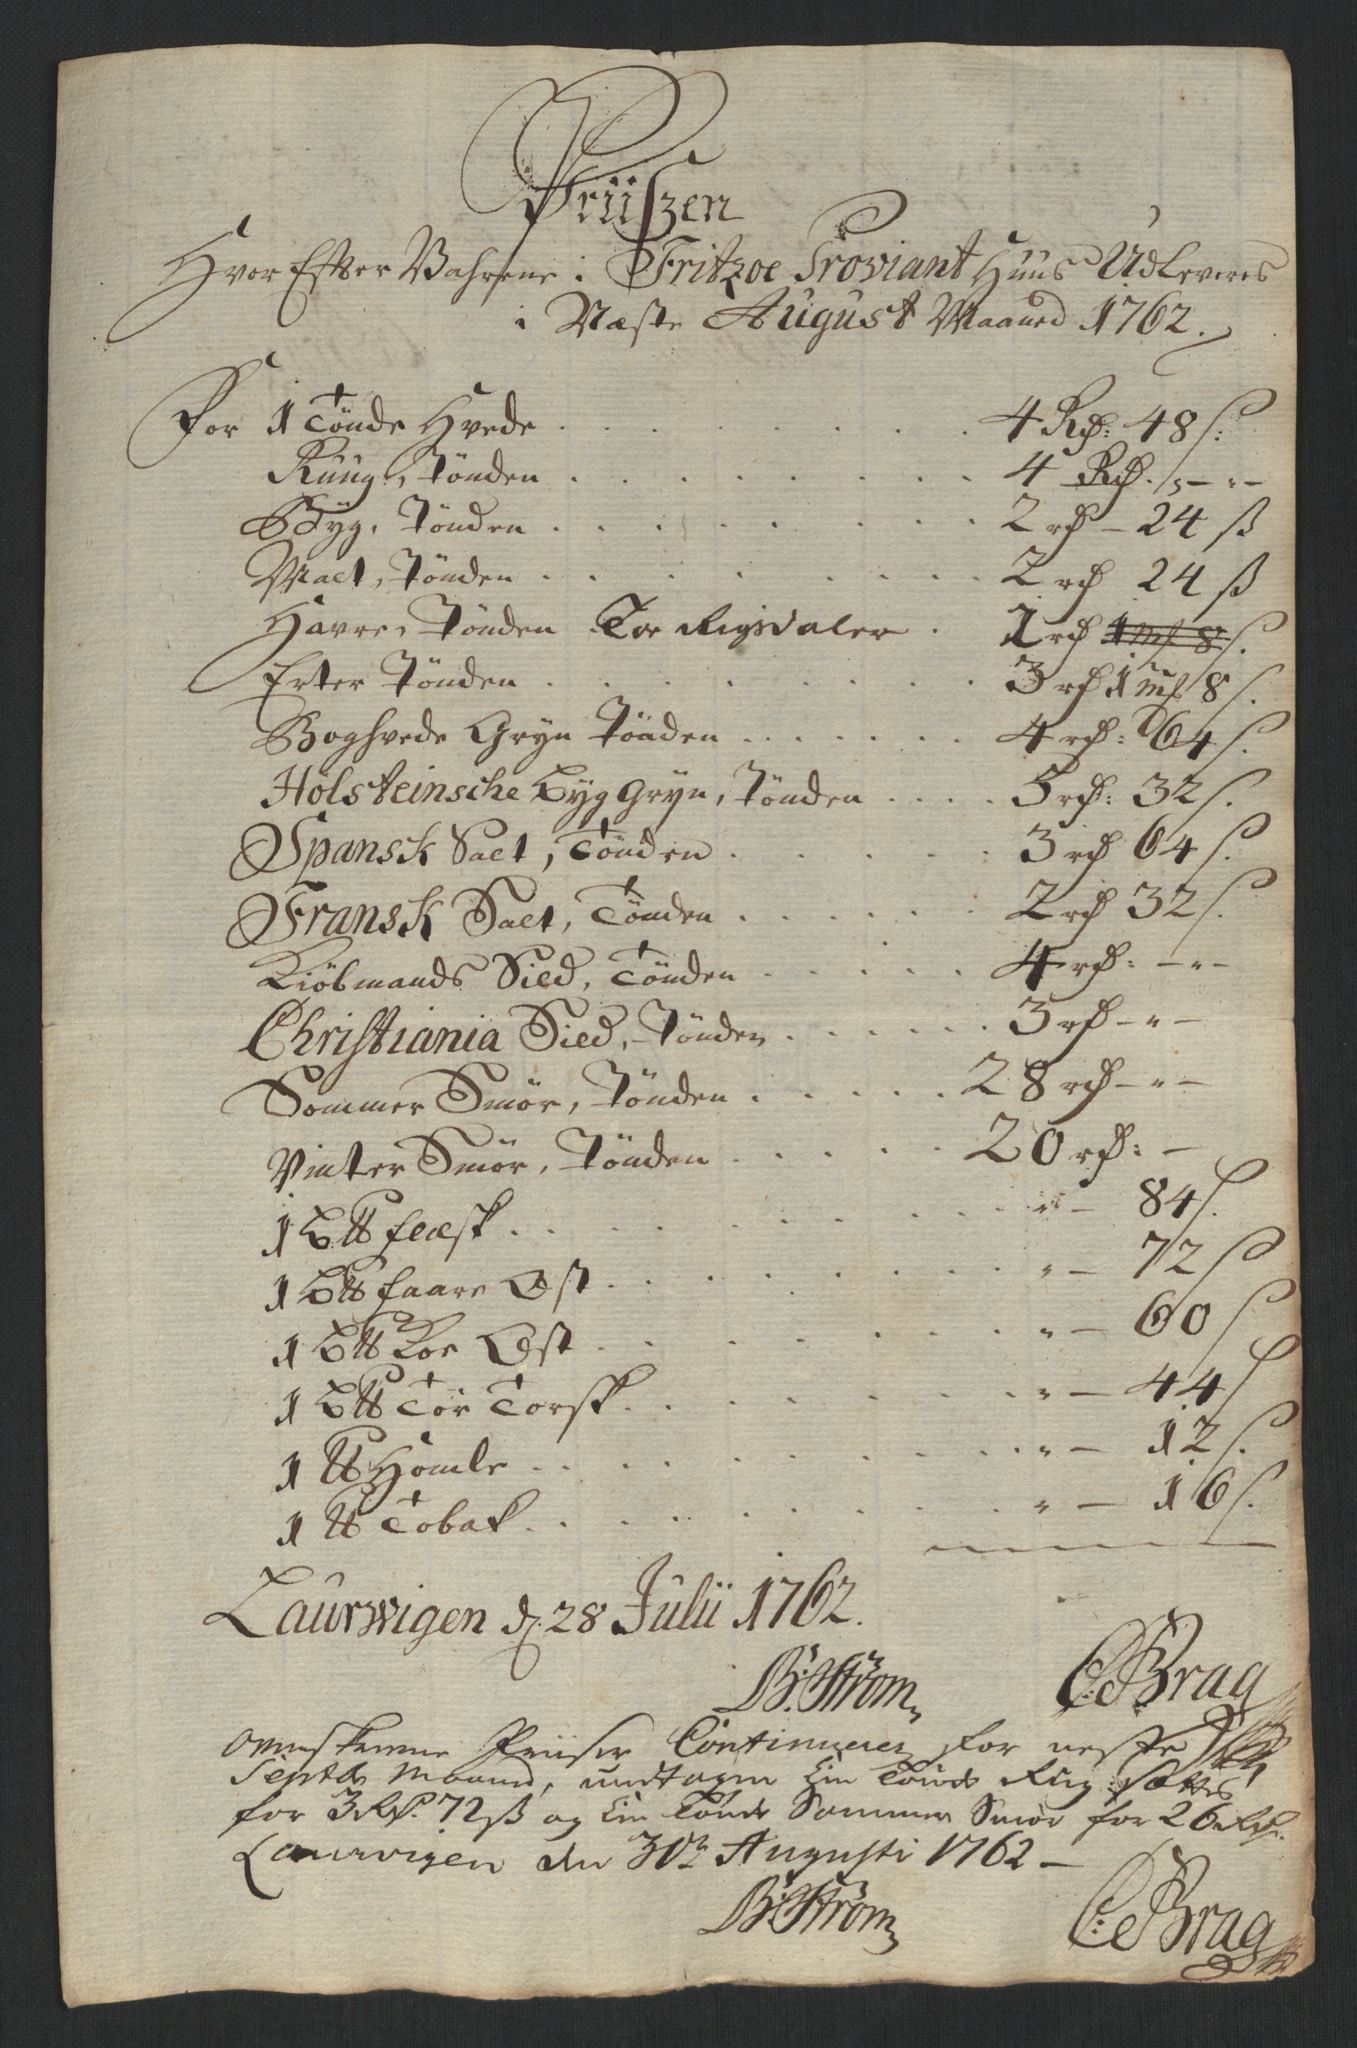 Priiszen
Hvor Efter Vahrene i Fritzoe Proviant Huus Udleveres
i Næste August Maaned 1762.
For 1 Tönde Hvede . . . . . . . 4 Rd: 48 s:
Ruug, Tönden . . . . . . . 4 Rd. „ — „ —
Byg, Tönden . . . . . . . 2 rd — 24 ß
Malt, Tönden . . . . . . . 2 rd 24 ß
Havre, Tönden Toe Rigsdaler . 2 rd 1 mk 8 s.
Erter Tönden . . . . . . . 3 rd 1 mk 8 s.
Boghvede Gryn Tönden . . . . . . 4 rd: 64 s.
Holsteinsche Byg Gryn, Tönden . . . . 5 rd: 32 s.
Spansk Salt, Tönden . . . . . 3 rd 64 s.
Fransk Salt, Tönden . . . . . . 2 rd 32 s.
Kiöbmands Sild, Tönden . . . . . 4 rd: — „ —
Christiania Sild, Tönden . . . . . . 3 rd — „ —
Sommer Smör, Tönden . . . . . 28 rd — „ —
Vinter Smör, Tönden . . . . . 20 rd: —
1 B℔ Flesk . . . . . . . . „ — 84 s.
1 B℔ Faare Ost . . . . . . . „ — 72 s
1 B℔ Koe Ost . . . . . . . „ — 60 s
1 B℔ Tör Torsk . . . . . . . „ — 44 s
1 ℔ Homle . . . . . . . . „ — 12 s.
1 ℔ Tobak . . . . . . . . „ — 16 s.
Laurwigen d. 28 Julii 1762.
B: Ström C: Brag
Ovenskrevne Priiser Continuerer for neste
Septbr Maaned, undtagen Een Tönde Rug sættes
for 3 Rd. 72 ß og Een Tönde Sommer Smör for 26 Rd.
Laurvigen den 30te Augusti 1762 —
B: Ström C: Brag